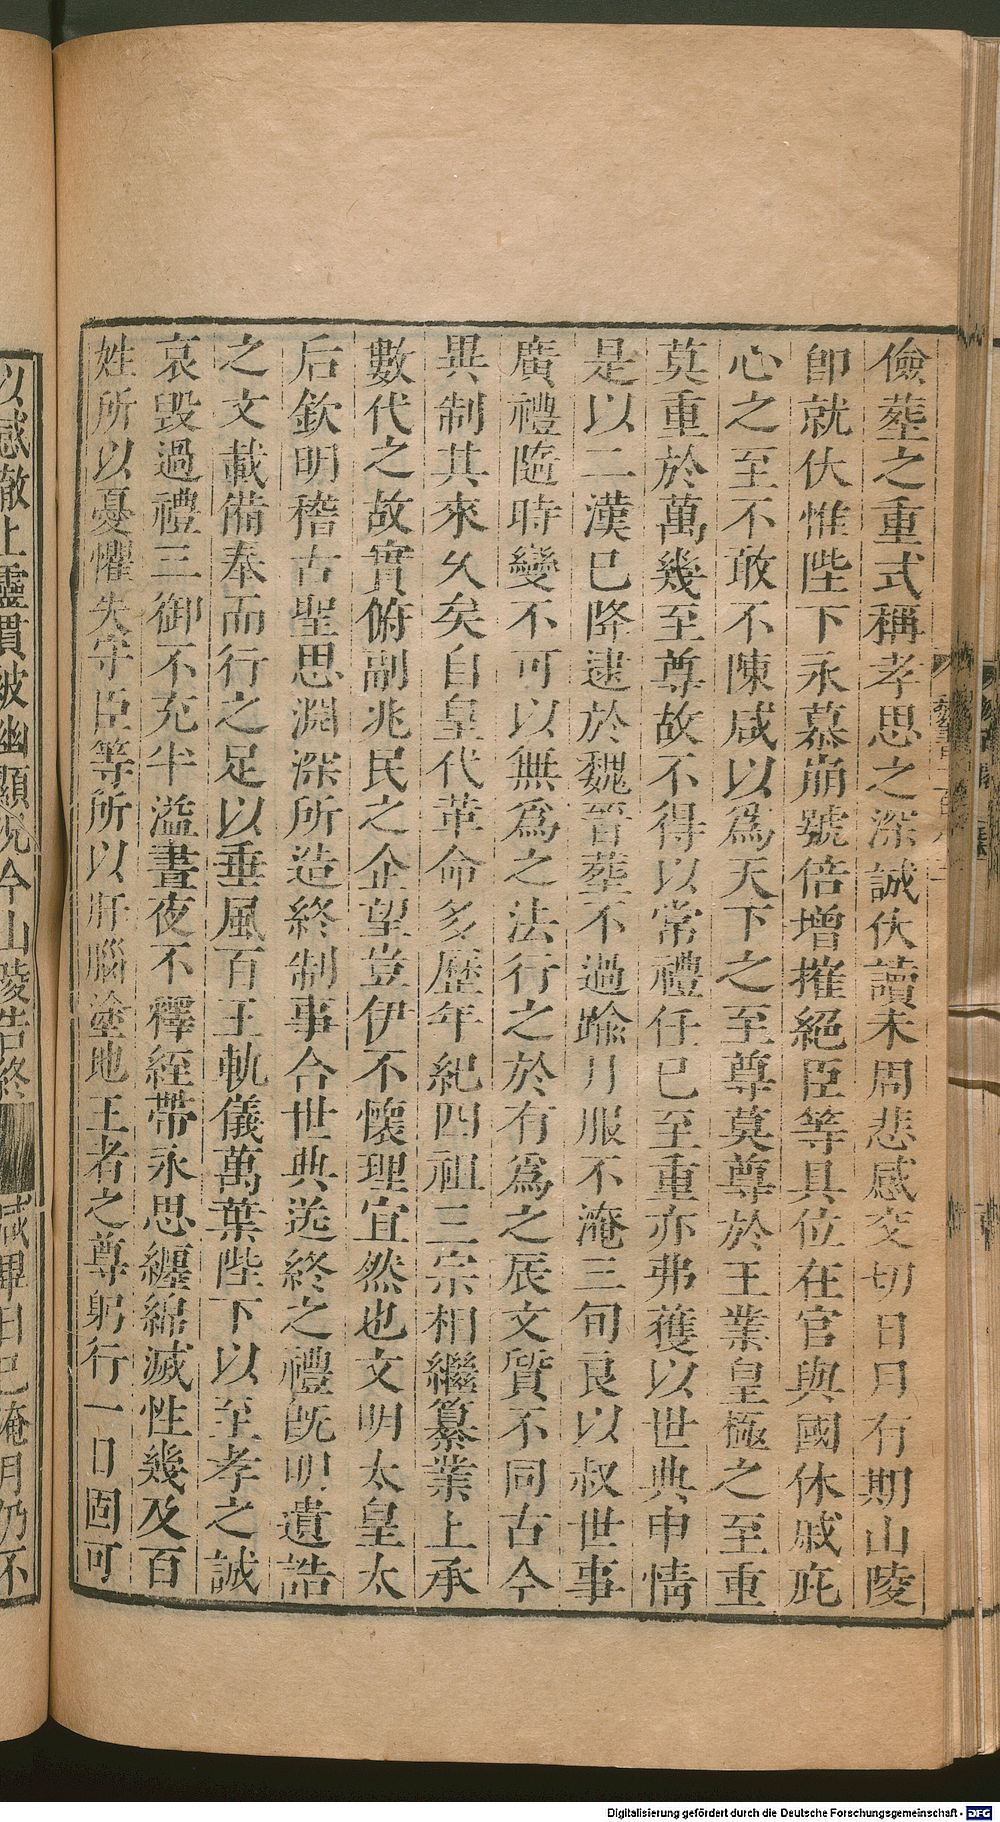 儉葬之重式稱孝思之深誠伏讀未周悲感交切日月有期山陵
卽就伏惟陛下永慕崩號倍增摧絕臣等具位在官與國休戚庇
心之至不敢不陳咸以爲天下之至尊莫尊於王業皇極之至重
莫重於萬幾至尊故不得以常禮任已至重亦弗獲以世典申情
是以二漢已降逮於魏晉葬不過踰月服不淹三旬良以叔世事
廣禮隨時變不可以無爲之法行之於有爲之辰文質不同古今
異制其來久矣自皇代革命多歷年紀四祖三宗相繼纂業上承
數代之故實俯副兆民之企望豈伊不懷理宜然也文明太皇太
后欽明稽古聖思淵深所造終制事合世典送終之禮旣明遺誥
之文載備奉而行之足以垂風百王軌儀萬葉陛下以至孝之誠
哀毀過禮三御不充半溢晝夜不釋絰帶永思纏綿滅性幾及百
姓所以憂懼失守臣等所以肝腦塗地王者之尊躬行一日固可
以感徹上靈貫被幽顯況今山陵告終咸畢日已淹月仍不
Digitalisierung gefördert durch die Deutsche Forschungsgemeinschaft - DFG